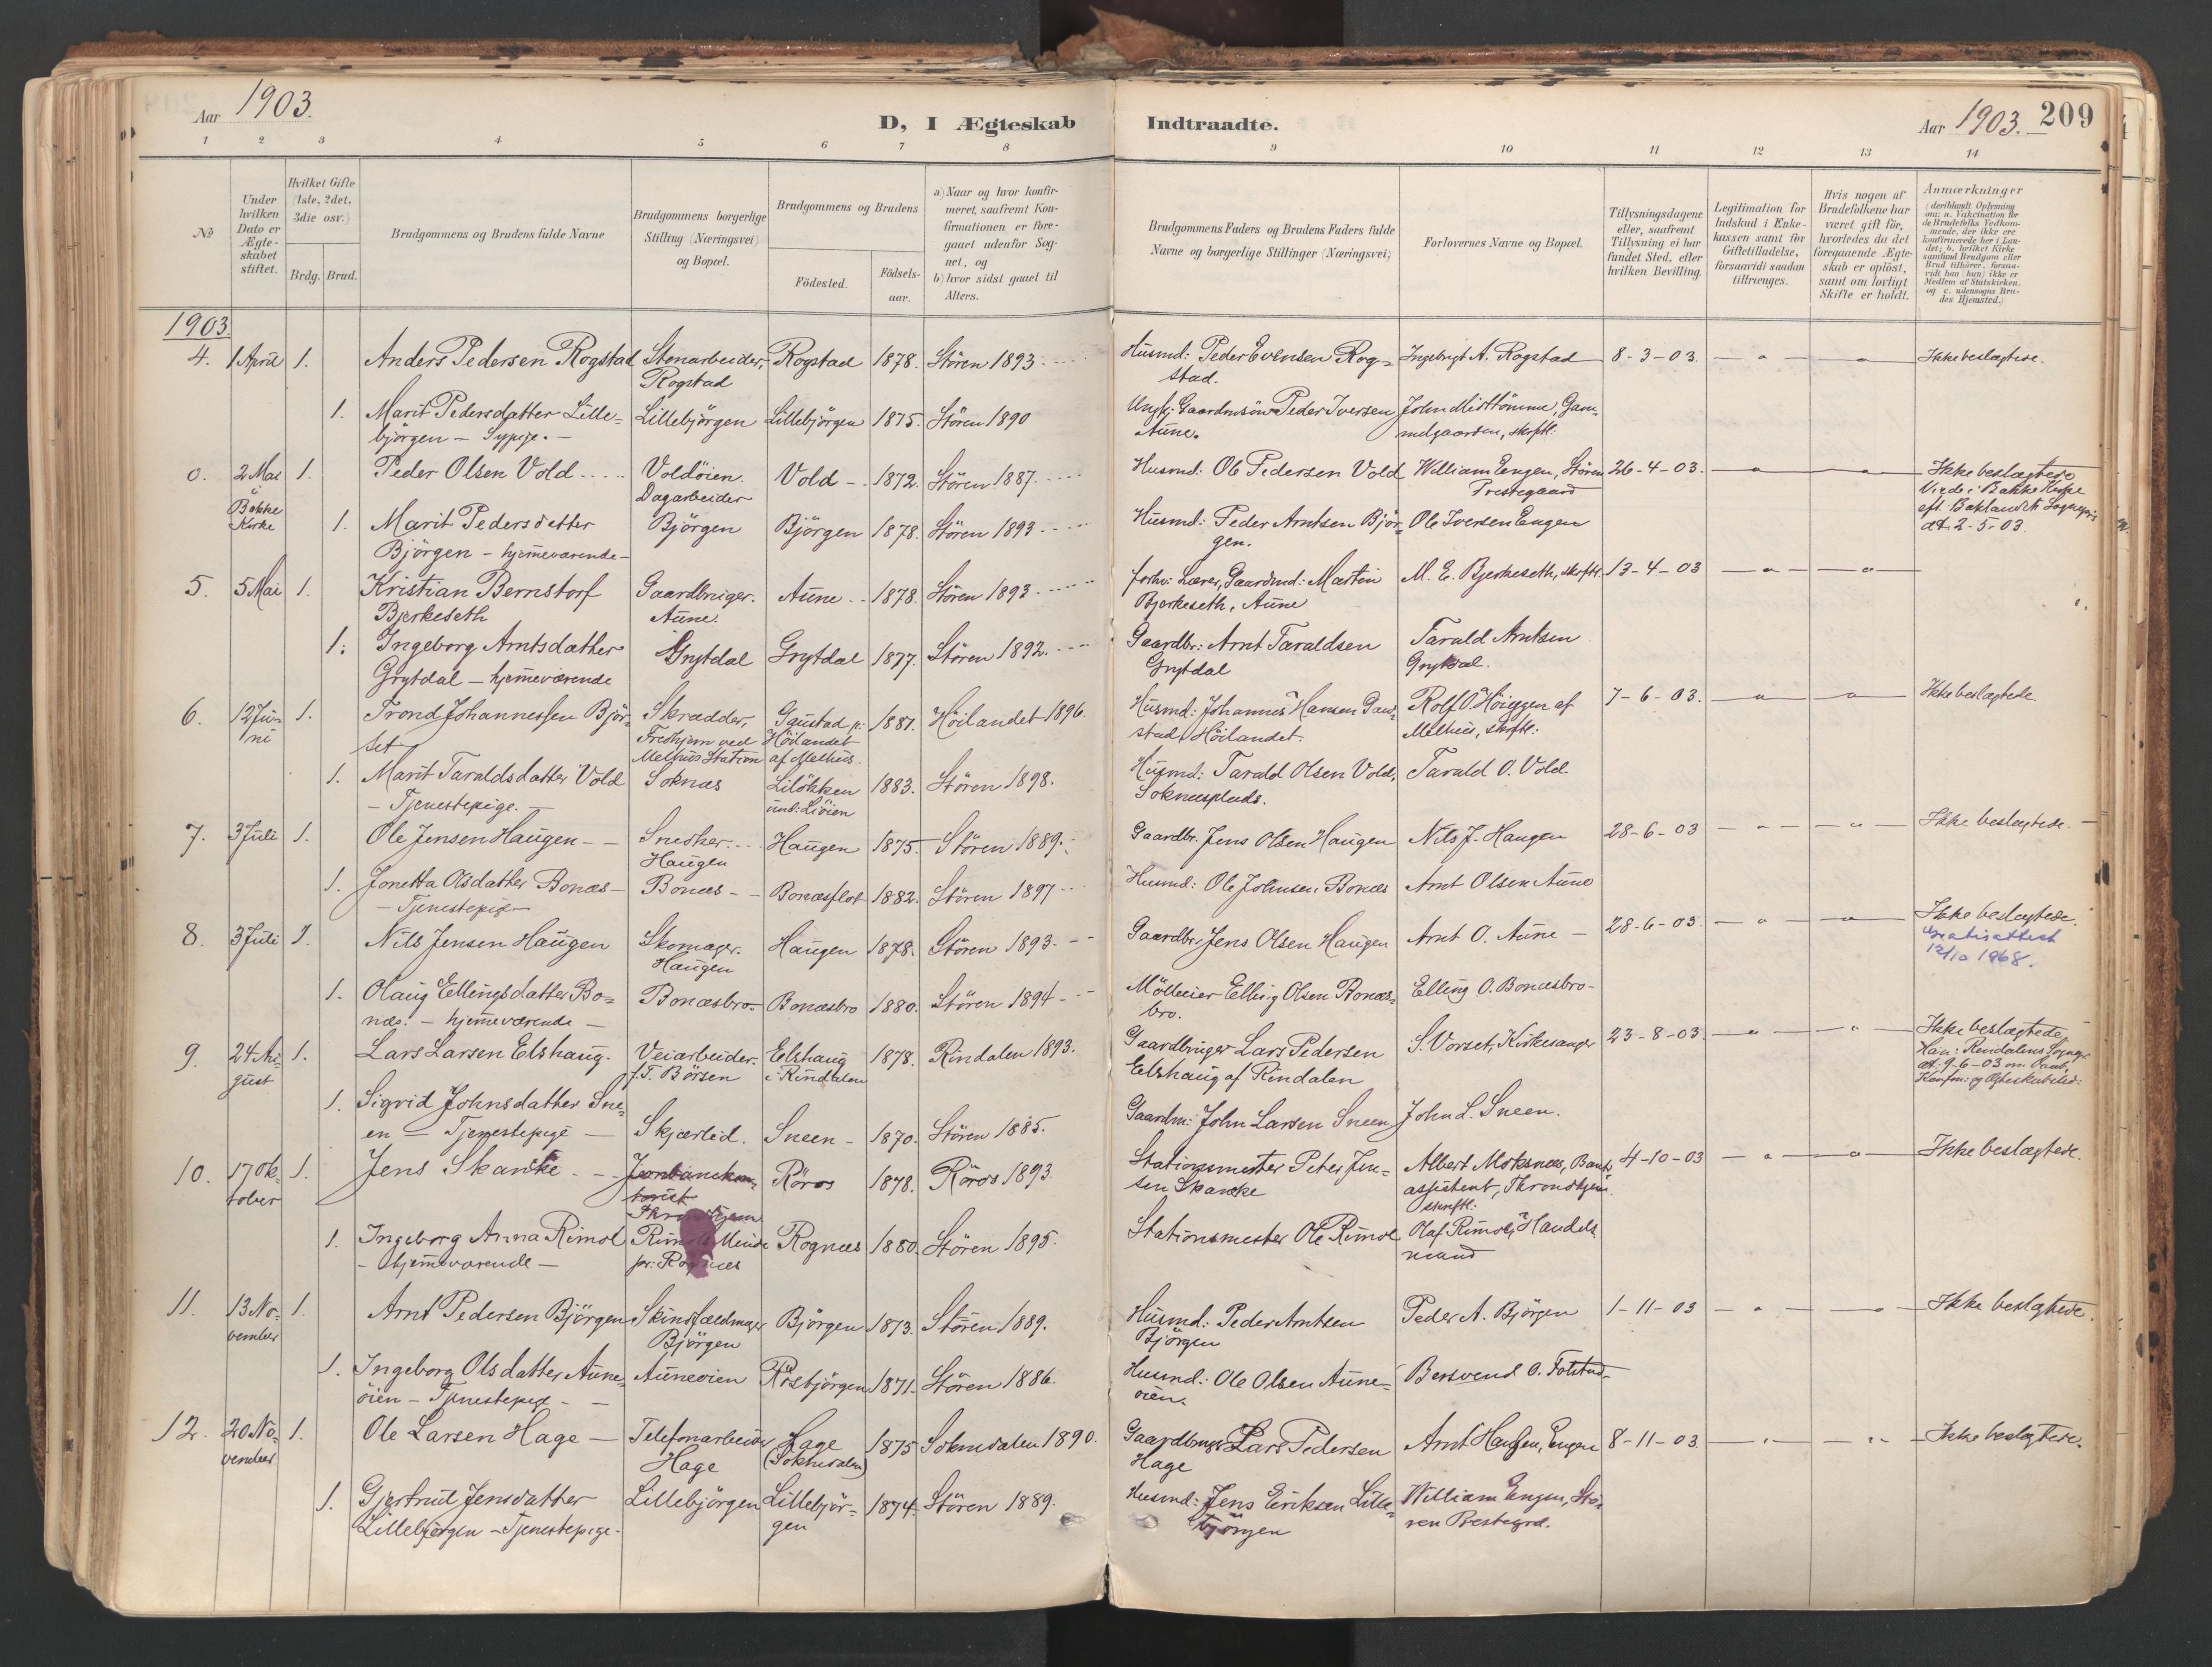 Aar 1903.
D, I Ægteskab Indtraadte.
Aar 1903. 209
1 2 3 4 5 6 7 8 9 10 11 12 13 14
No
Under hvilken Dato er Ægteskabet stiftet.
Hvilket Gifte (1ste, 2det, 3die osv.)
Brdg. Brud.
Brudgommens og Brudens fulde Navne
Brudgommens borgerlige Stilling (Næringsvei) og Bopæl.
Brudgommens og Brudens
Födested.
Födsels-aar.
a) Naar og hvor konfirmeret, saafremt Konfirmationen er foregaaet udenfor Sognet, og
b) hvor sidst gaaet til Alters.
Brudgommens Faders og Brudens Faders fulde Navne og borgerlige Stillinger (Næringsvei)
Forlovernes Navne og Bopæl.
Tillysningsdagene eller, saafremt Tillysning ei har fundet Sted, efter hvilken Bevilling.
Legitimation for Indskud i Enkekassen samt for Giftetilladelse, forsaavidt saadan tiltrænges.
Hvis nogen af Brudefolkene har været gift för, hvorledes da det foregaaende Ægteskab er oplöst, samt om lovligt Skifte er holdt.
Anmærkninger (deriblandt Oplysning om: a. Vakcination for de Brudefolks Vedkommende, der ikke ere konfirmerede her i Landet; b. hvilket Kirkesamfund Brudgom eller Brud tilhörer, forsaavidt han (hun) ikke er Medlem af Statskirken, og c. udensogns Brudes Hjemsted.)
1903.
4. 1 April 1. Anders Pedersen Rogstad Stenarbeider, Rogstad 1878. Stören 1893 Husmd: Peder Evensen Rog- Ingebrigt A. Rogstad 8-3-03. Ikke beslægtede.
Rogstad stad.
1. Marit Pedersdatter Lille- Lillebjörgen Lillebjörgen 1875. Stören 1890 Ungk: Gaardmsön Peder Iversen John Midttömme, Gam-
björgen - Sypige. - Aune. melgaarden, skriftl:
0. 2 Mai 1. Peder Olsen Vold Voldöien. Vold 1872. Stören 1887. Husmd: Ole Pedersen Vold William Engen, Stören 26-4-03. Ikke beslægtede
i Bakke Kirke Dagarbeider Prestegaard Viede i Bakke Kirke
1. Marit Pedersdatter Björgen Björgen 1878. Stören 1893 Husmd: Peder Arntsen Björ- Ole Iversen Engen eft. Baklandets Sognepr.
Björgen - hjemmeværende - gen. dt. 2-5-03.
5. 5 Mai 1. Kristian Bernstorf Gaardbruger. Aune 1878. Stören 1893 forhv: Lærer, Gaardmd: Martin M. E. Bjerkeseth, skriftl. 13-4-03
Bjerkeseth Aune. Bjerkeseth, Aune
1. Ingeborg Arntsdatter Grytdal Grytdal 1877. Stören 1892. Gaardbr: Arnt Taraldsen Tarald Arntsen
Grytdal - hjemmeværende Grytdal Grytdal.
6. 12 Juni 1. Trond Johannessen Björ- Skrædder, Gaustad p: 1881. Höilandet 1896. Husmd: Johannes Hansen Gau- Rolf O. Höieggen af 7-6-03. Ikke beslægtede
set Fredhjem ved Höilandet stad, Höilandet. Melhus, skriftl:
Melhus Station af Melhus.
1. Marit Taraldsdatter Vold Soknæs Lilökken 1883. Stören 1898. Husmd: Tarald Olsen Vold, Tarald O. Vold
- Tjenestepige. - und: Liöien Soknæsplads.
7. 3 Juli 1. Ole Jensen Haugen Snedker. Haugen 1875. Stören 1889. Gaardbr. Jens Olsen Haugen Nils J. Haugen 28-6-03 Ikke beslægtede.
Haugen
1. Jonetta Olsdatter Bonæs Bonæs Bonæsflot 1882. Stören 1897 Husmd: Ole Johnsen Bonæs Arnt Olsen Aune
- Tjenestepige
8. 3 Juli 1. Nils Jensen Haugen Skomager. Haugen 1878. Stören 1893. Gaardbr: Jens Olsen Haugen Arnt O. Aune 28-6-03. Ikke beslægtede.
Haugen Gratisattest
12/10 1968.
1. Olaug Ellingsdatter Bo- Bonæsbro Bonæsbro 1880. Stören 1894 Mölleeier Elling Olsen Bonæs- Elling O. Bonæsbro
næs. - hjemmeværende - bro.
9. 24 August 1. Lars Larsen Elshaug. Veiarbeider. Elshaug 1878. Rindalen 1893. Gaardbruger Lars Pedersen S. Vorset, Kirkesanger 23-8-03. Ikke beslægtede
f. T. Börsen i Rindalen Elshaug af Rindalen Han: Rindalens Sognepr.
att. 9-6-03 om Daab,
Konfm: og Ægteskabsled:
1. Sigrid Johnsdatter Sne-
en - Tjenestepige - Skjærlid. Sneen 1870. Stören 1885. Gaardm: John Larsen Sneen John L. Sneen.
10. 17 Oktober 1. Jens Skancke Jernbanekon- Röros 1878. Röros 1893. Stationsmester Peter Jen- Albert Moksnes, Bank- 4-10-03 Ikke beslægtede.
toriet sen Skancke assistent, Throndhjem
Throndhjem skriftl:
1. Ingeborg Anna Rimol Minde Rognæs 1880. Stören 1895. Stationsmester Ole Rimol Olaf Rimol, Handels
- hjemmeværende - pr: Rognæs mand
11. 13 November 1. Arnt Pedersen Björgen Skindfældmager Björgen 1873. Stören 1889. Husmd: Peder Arntsen Peder A. Björgen 1-11-03 Ikke beslægtede.
Björgen Björgen
1. Ingeborg Olsdatter Aune- Auneoien Rösbjörgen 1871. Stören 1886. Husmd: Ole Olsen Aune- Bersvend O. Folstad
öien - Tjenestepige - öien.
12. 20 November 1. Ole Larsen Hage Telefonarbeider Hage 1875 Soknedalen 1890. Gaardbruger Lars Pedersen Arnt Hansen, Engen 8-11-03. Ikke beslægtede.
Hage (Soknedalen) Hage
1. Gjertrud Jensdatter Lillebjörgen Lillebjör- 1874. Stören 1889. Husmd: Jens Eriksen Lille- William Engen, Stö-
Lillebjörgen - Tjenestepige. gen björgen ren Prestegrd.